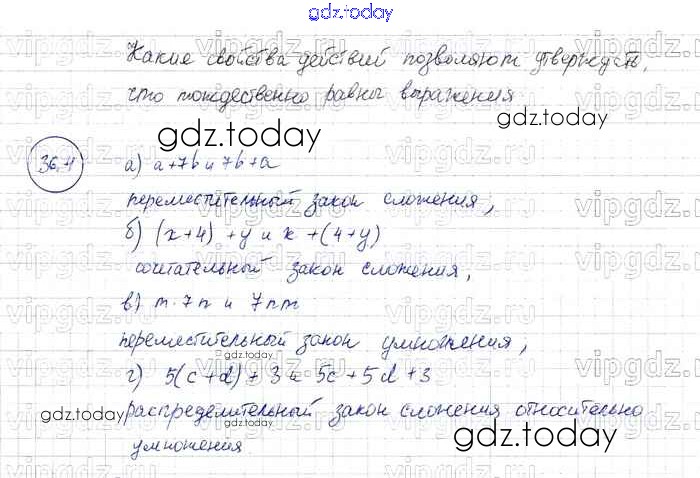 gdz.today
Какие свойства действий позволяют утверждать,
что тождественно равны выражения
gdz.today
36.4 а) a+7b и 7b+a
переместительный закон сложения;
б) (x+4)+y и x+(4+y)
сочетательный закон сложения,
в) m·7n и 7nm
переместительный закон умножения,
gdz.today
г) 5(c+d)+3 и 5c+5d+3
gdz.today
распределительный закон сложения относительно
умножения
gdz.today
gdz.today